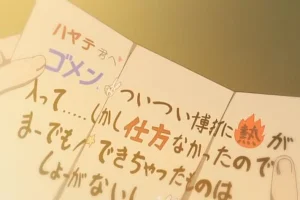 ハヤテ君へ
ゴメン、ついつい博打に熱が
入って……しかし仕方なかったので
まーでも、できちゃったものは
しょーがないし